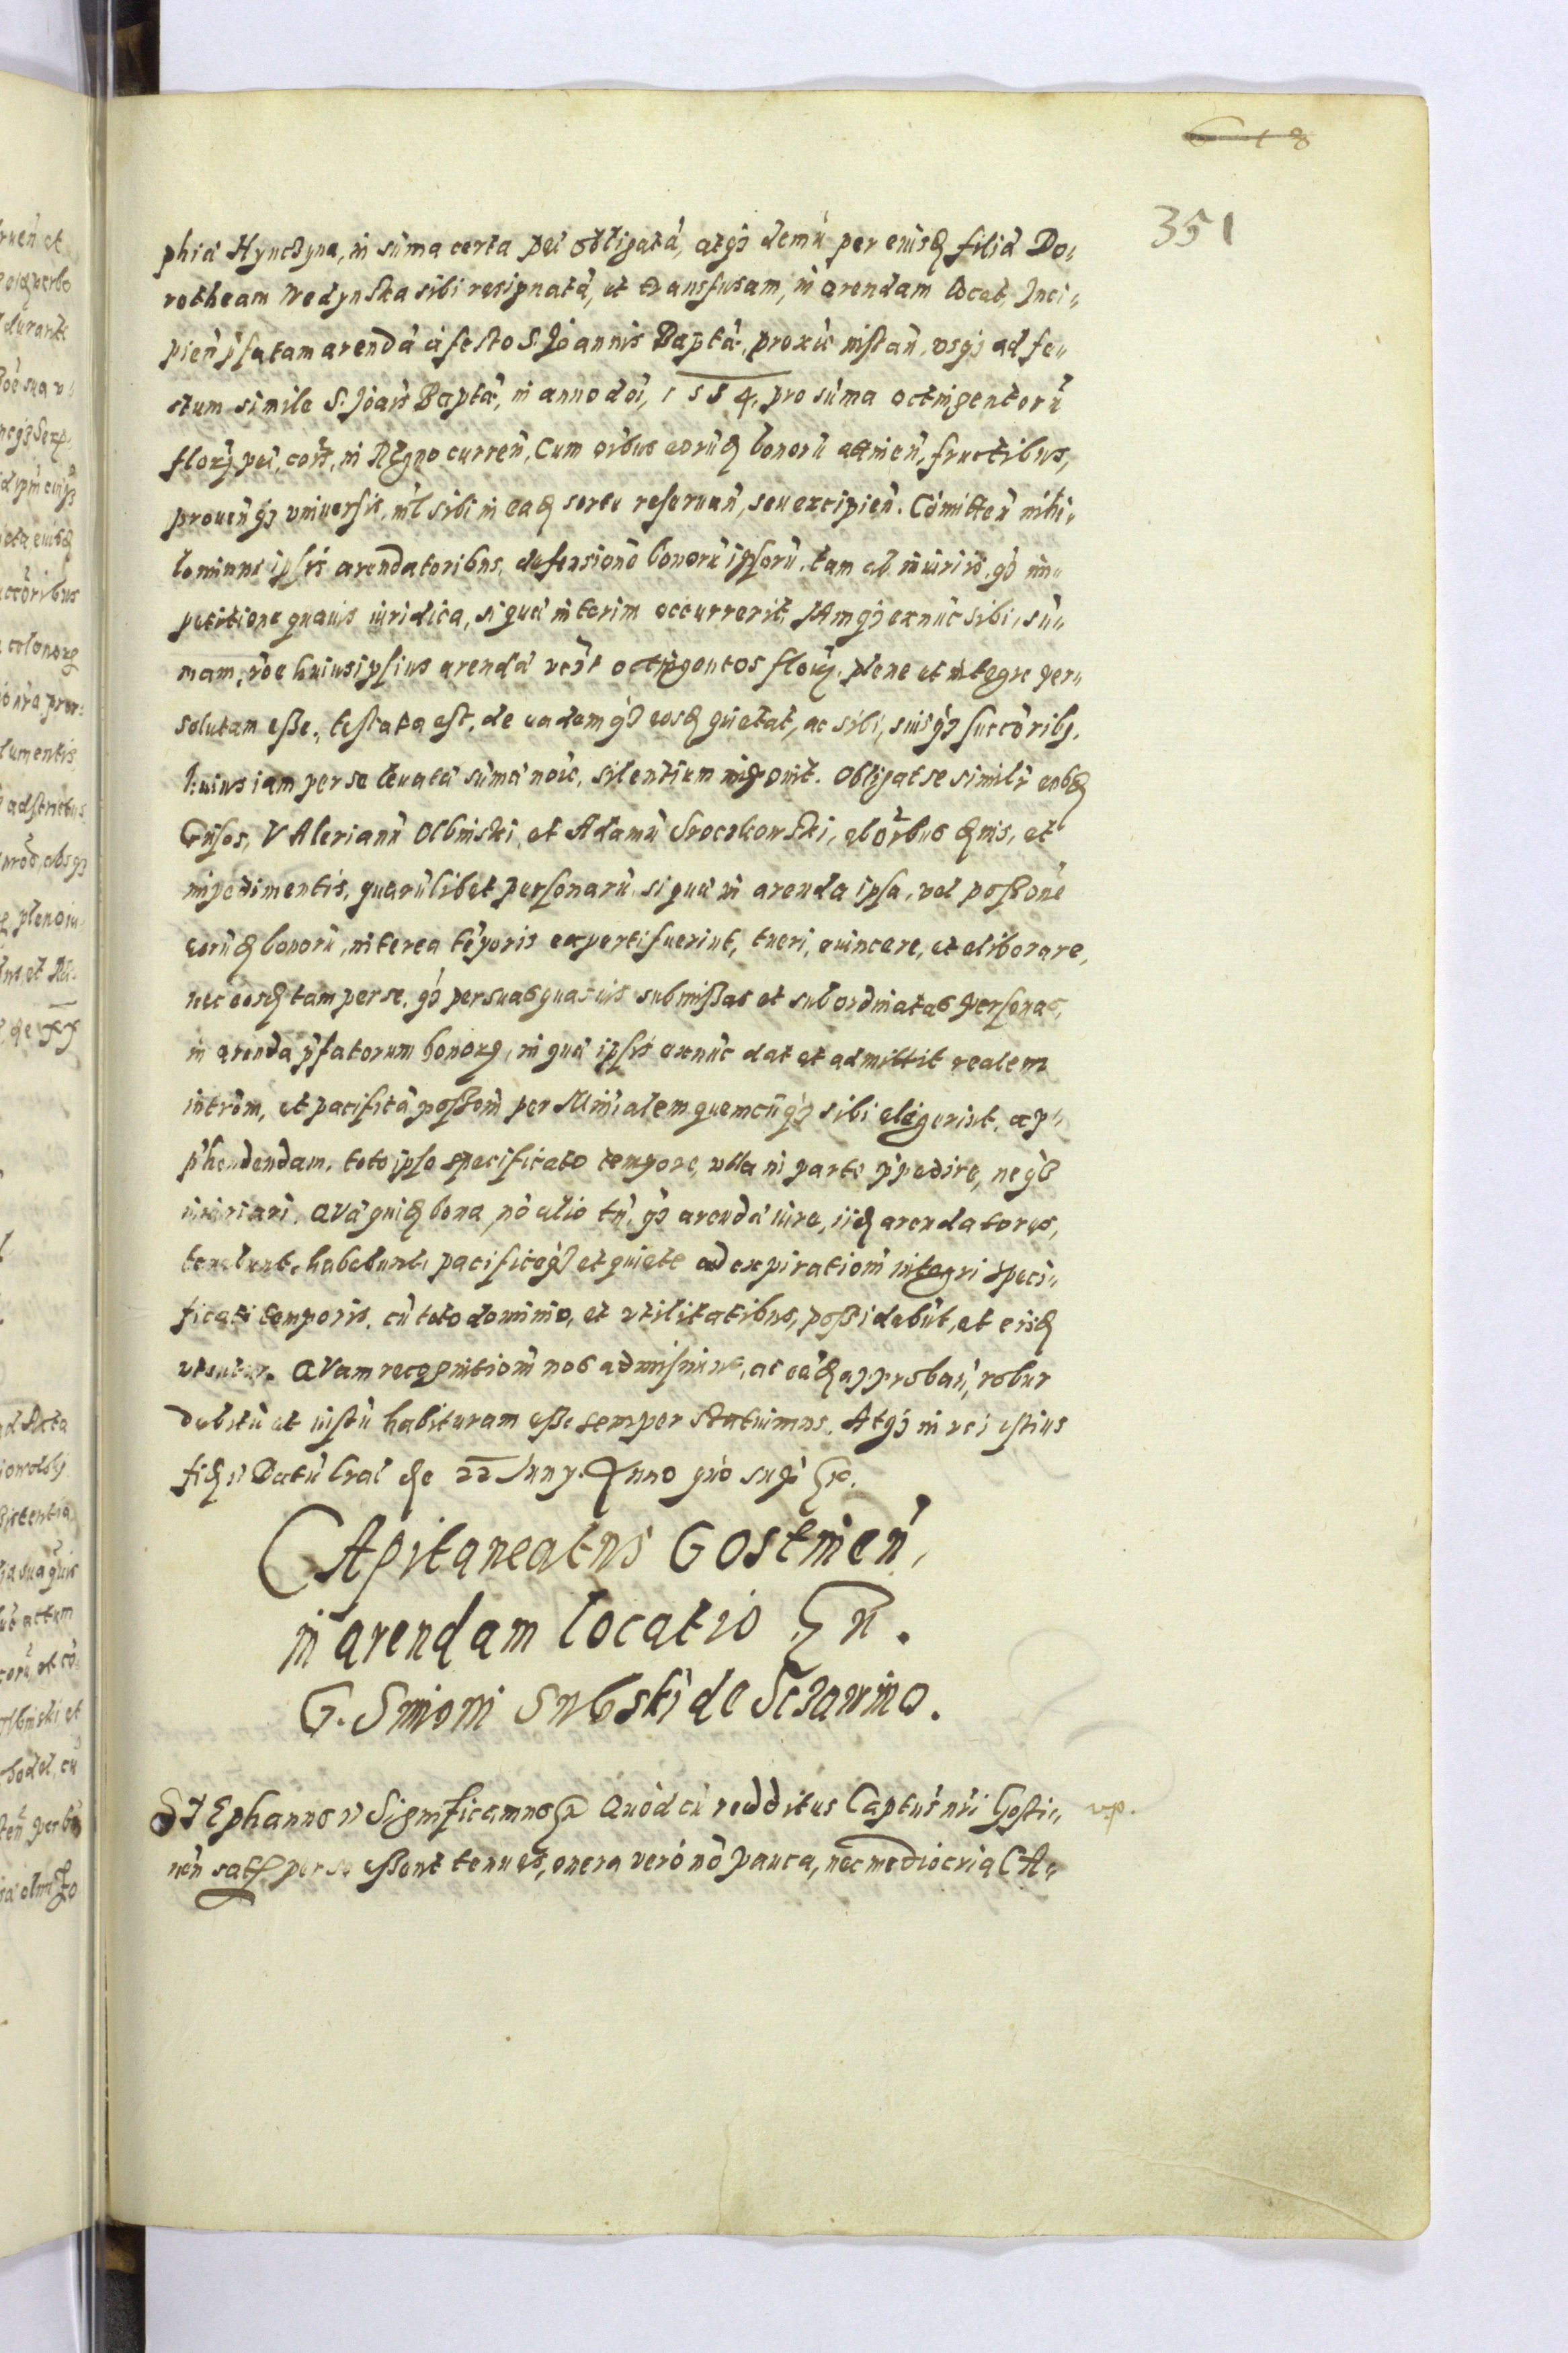 618
351
phiā Hynczyne, in sūma certa pēi obligatā, atqʒ demū per eiusdē filiā Do„
rotheam Wedynska sibi resignatā, et transfusam, in arendam locat, Inci„
pieñ p̄fatam arendā à festo S. Joannis Baptā: proxīē instañ, usqʒ ad fe„
stum simile S. Joāīs Baptā, in anno dōī, 1584, pro sūma octingentorū
florꝝ pēi, coīs, in Regno curreñ, Cum oībus eorūdē bonorū attineñ, fructibus,
proueñqʒ vniuersis, nīl sibi in eadē sorte reseruañ, seu excipieñ. Cōmitteñ nihi„
lominus ipsis arendatoribus, defensionē bonorū ipsorū, tam ab iniuriis, qʒ im„
petitione quauis iuridica, si quā interim occurrerit, Iamqʒ exnūc sibi, sū„
mam, rōe huius ipsius arendā vēīt octingentos florꝝ. plene et integre per„
solutam esse, testata est, de eademqʒ eosdē quietat, ac sibi, suisqʒ succōribʒ,
huius iam per se leuatā sūmā noīe, silentium imponit. Obligat se similr̄ eosdē
Gñsos, VAlerianū Olbinski, et Adamū Sroczkowski, ab oībus dānis, et
impedimentis, quarūlibet personarū, si quā in arenda ipsa, vel possōne
eorūdē bonorū, interea tēporis experti fuerint, tueri, euincere, et eliberare,
nec eosdē tam per se, qʒ per suas quasuis submissas et subordinatas personas,
in arenda p̄fatorum bonorꝝ, in quā ipsis exnūc dat et admittit realem
intrōm, et pacificā possōm per Miñialem quemcūqʒ sibi elegerint, ap„
p̄hendendam, toto ipso specificato tempore, ulla in parte p̄pedire, neqʒ
iniuriari. QVā quidē bona, nō alio tñ. qʒ arendā iure, iidē arendatores,
tenebunt, habebunt, pacificeqʒ et quiete ad expirationē integri speci„
ficati temporis, cū toto dominio, et utilitatibus, possidebūt, et eisdē
utentur. QVam recognitionē nos admisimus, ac eādē approbañ, robur
debitū et iustū habituram esse semper statuimus. Atqʒ in rei istius
fidē ꝛc Datū Craī die 22 Juny. Anno quō supr̄ ꝛc.
CApitaneatus Gostineñ,
in arendam locatio Gñ.
G. Simoni Subski de Sczawino.
STEphannus ꝛc Significamus ꝛc Quòd cū redditus Captus nr̄i Gosti„
v.p.
neñ satis per se essent tenues, onera verò nō pauca, nec mediocria CA„